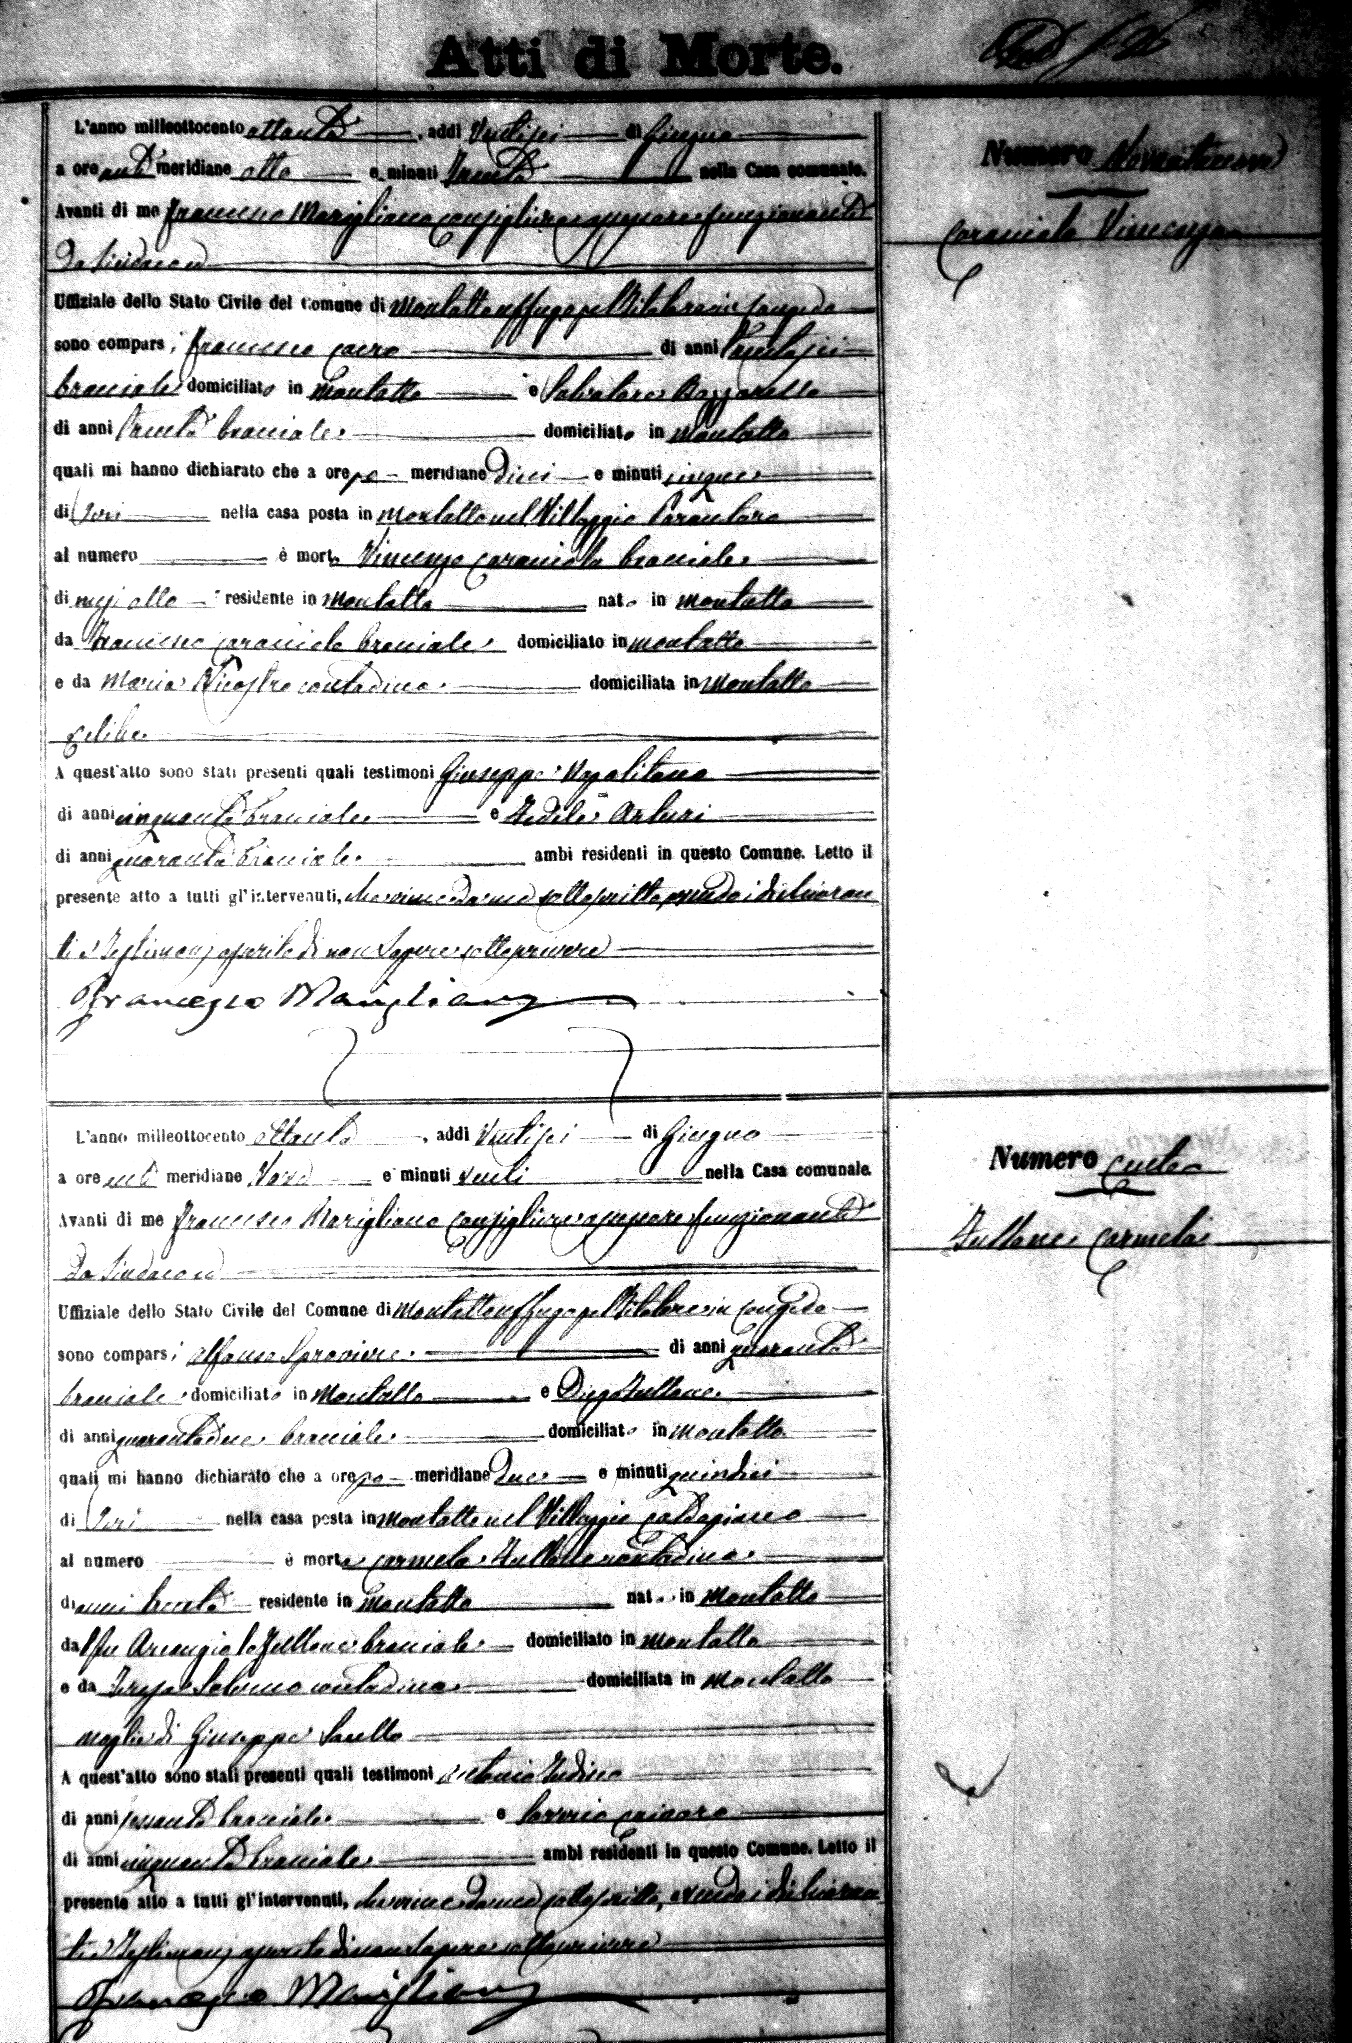 Atti di Morte.
L'anno milleottocento ottanta, addì Ventisei di Giugno
a ore anti meridiane otto e minuti trenta nella Casa comunale.
Avanti di me Francesco Marigliano consigliere assessore funzionante
da Sindaco
Uffiziale dello Stato Civile del Comune di Montalto uffugo pel titolare in congedo
sono comparsi Francesco di anni
bracciale domiciliato in Montalto e Salvatore Bazzarello
di anni trenta bracciale domiciliato in Montalto
quali mi hanno dichiarato che a ore po meridiane dieci e minuti cinque
di Ieri nella casa posta in Montalto nel Villaggio Parantoro
al numero è morto Vincenzo Caraciolo bracciale
di mesi otto residente in Montalto nato in Montalto
da Francesco Caraciolo bracciale domiciliato in Montalto
e da Maria Nicastro contadina domiciliata in Montalto
celibe
A quest'atto sono stati presenti quali testimoni Giuseppe Napolitano
di anni cinquanta bracciale e Fedele Arturi
di anni quaranta bracciale ambi residenti in questo Comune. Letto il
presente atto a tutti gl'intervenuti, che viene da me sottoscritto, avendo i dichiaran
ti e Testimonj asserito di non Sapere sottoscrivere
Francesco Marigliano
Numero
Caraciolo Vincenzo
L'anno milleottocento ottanta, addì Ventisei di Giugno
a ore anti meridiane Nove e minuti venti nella Casa comunale.
Avanti di me Francesco Marigliano consigliere assessore funzionante
da Sindaco
Uffiziale dello Stato Civile del Comune di Montalto uffugo pel titolare in congedo
sono comparsi Alfonso Sproviere di anni quaranta
bracciale domiciliato in Montalto e Diego Fullone
di anni quarantadue bracciale domiciliato in Montalto
quali mi hanno dichiarato che a ore po meridiane due e minuti quindici
di Ieri nella casa posta in Montalto nel Villaggio
al numero è morta Carmela Fullone contadina
di anni trenta residente in Montalto nata in Montalto
dal fu Arcangiolo Fullone bracciale domiciliato in Montalto
e da Teresa Salerno contadina domiciliata in Montalto
moglie di Giuseppe
A quest'atto sono stati presenti quali testimoni Antonio
di anni sessanta bracciale e Saverio
di anni cinquanta bracciale ambi residenti in questo Comune. Letto il
presente atto a tutti gl'intervenuti, che viene da me sottoscritto, avendo i dichiaran
ti e Testimonj asserito di non Sapere sottoscrivere
Francesco Marigliano
Numero Cento
Fullone Carmela